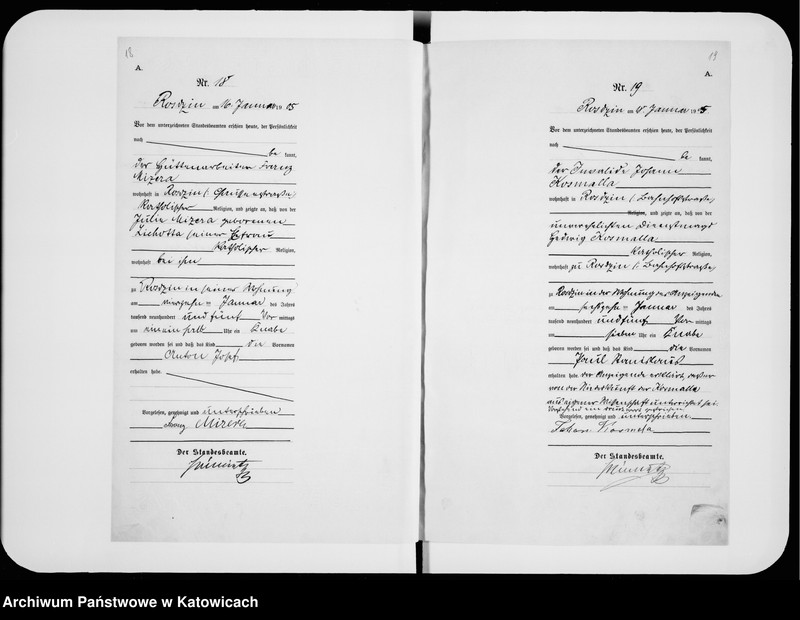 18
A.
Nr. 18
Rosdzin am 16. Januar 1905
Vor dem unterzeichneten Standesbeamten erschien heute, der Persönlichkeit
nach
be kannt,
der Hüttenarbeiter Franz
Mizera
wohnhaft in Rosdzin
katholischer Religion, und zeigte an, daß von der
Julie Mizera geborenen
Lichotta seiner Ehefrau
katholischer Religion,
wohnhaft bei ihm
zu Rosdzin in seiner Wohnung
am vierzehn Januar des Jahres
tausend neunhundert und fünf Vor mittags
um Uhr ein Knabe
geboren worden sei und daß das Kind die Vornamen
Anton Josef
erhalten habe.
Vorgelesen, genehmigt und unterschrieben
Franz Mizera
Der Standesbeamte.
19
A.
Nr. 19
Rosdzin am Januar 1905
Vor dem unterzeichneten Standesbeamten erschien heute, der Persönlichkeit
nach
be kannt,
der Invalide Johann
Kosmalla
wohnhaft in Rosdzin, Bahnhofstraße
Religion, und zeigte an, daß von der
unverehelichten Dienstmagd
Hedwig Kosmalla
katholischer Religion,
wohnhaft zu Rosdzin, Bahnhofstraße
zu Rosdzin in der Wohnung des Anzeigenden
am Januar des Jahres
tausend neunhundert und fünf Vor mittags
um sieben Uhr ein Knabe
geboren worden sei und daß das Kind die Vornamen
Paul Stanislaus
erhalten habe. Der Anzeigende erklärt, daß er
von der Niederkunft der Kosmalla
aus eigener Wissenschaft unterrichtet sei.
Vorgelesen, genehmigt und unterschrieben
Der Standesbeamte.
Archiwum Państwowe w Katowicach